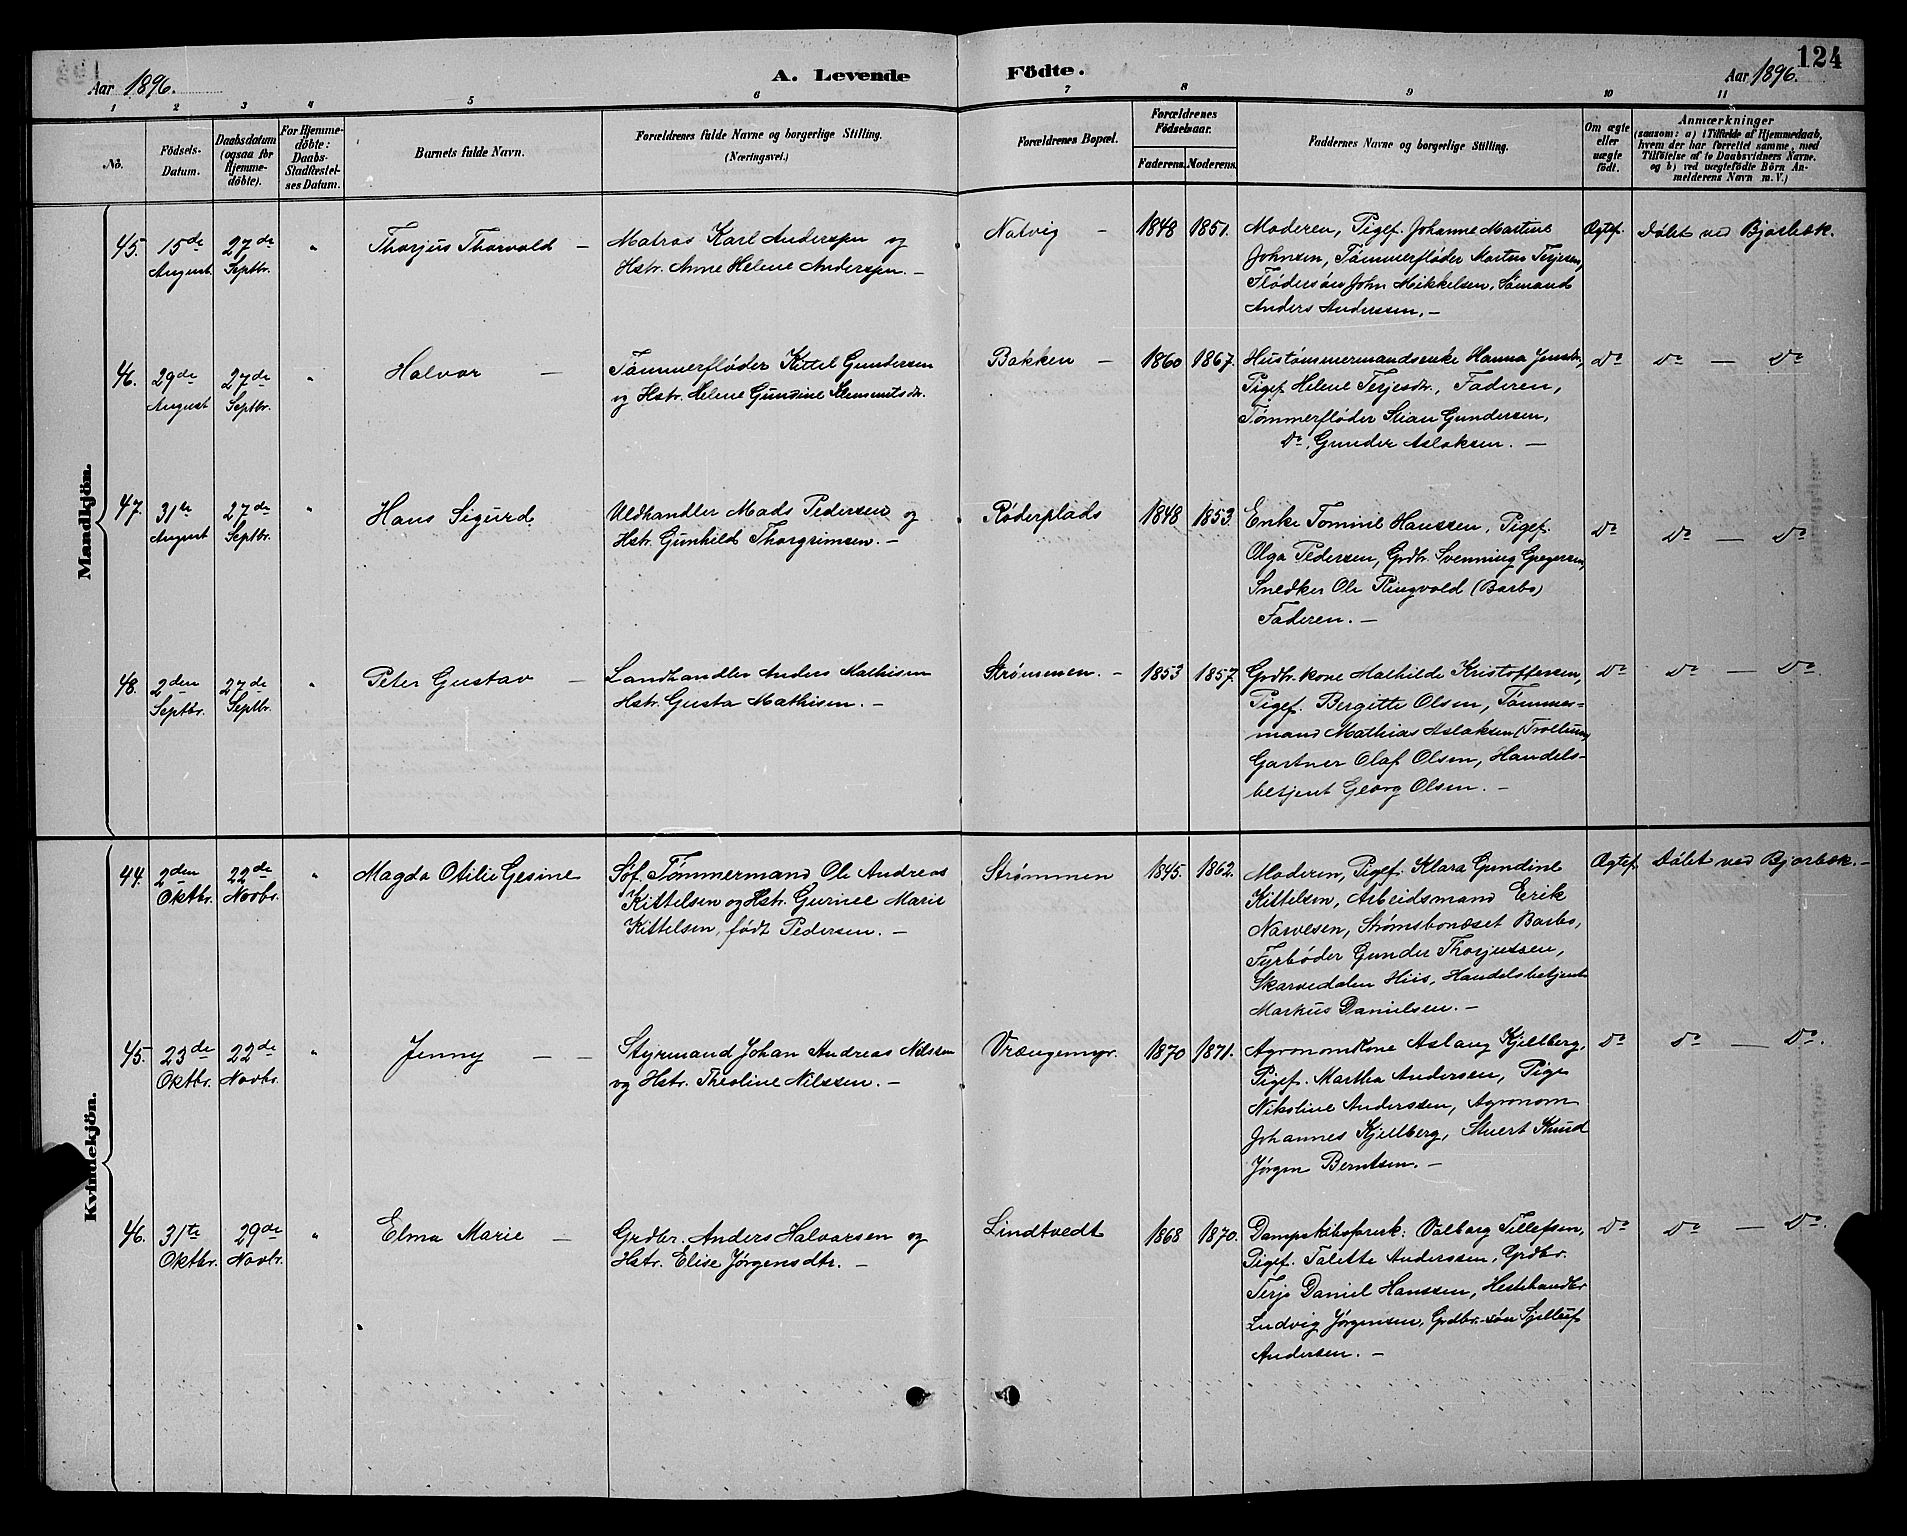 Aar 1896. A. Levende Födte. Aar 1896. 124
1 2 3 4 5 6 7 8 9 10 11
No.
Födsels-
Datum.
Daabsdatum
(ogsaa for
Hjemme-
döbte).
For Hjemme-
döbte:
Daabs-
Stadfæstel-
ses Datum.
Barnets fulde Navn.
Forældrenes fulde Navne og borgerlige Stilling.
(Næringsvei.)
Forældrenes Bopæl.
Forældrenes
Födselsaar.
Faderens. Moderens.
Faddernes Navne og borgerlige Stilling.
Om ægte
eller
uægte
födt.
Anmærkninger
(saasom: a) i Tilfælde af Hjemmedaab,
hvem der har forrettet samme, med
Tilföielse af to Daabsvidners Navne.
og b) ved uægtefödte Börn An-
melderens Navn m. V.)
Mandkjön.
45.
15de
August
27de
Septbr.
"
Thorjus Thorvald —
Matros Karl Anderssen og
Hstr. Anne Helene Anderssen. —
Natvig —
1848 1851.
Moderen, Pigef. Johanne Martine
Johnsen, Tømmerfløder Martin Terjesen,
Flødersøn John Mikkelsen, Sømand
Anders Anderssen. —
Ægtef. Døbt ved Bjorbæk.
46.
29de
August
27de
Septbr.
"
Halvor —
Tømmerfløder Kittel Gundersen
og Hstr. Helene Gundine Klemmetsdr.
Bakken —
1860 1867.
Hustømmermandsenke Hanna Jensdr.,
Pigef. Helene Terjesdr., Faderen,
Tømmerfløder Stian Gundersen,
Do. Gunder Aslaksen. —
Do Do — Do
47.
31te
August
27de
Septbr.
"
Hans Sigurd
Vedhandler Mads Pedersen og
Hstr. Gunhild Thorgrimsen. —
Røderplads
1848 1853.
Enke Tomine Hanssen, Pigef.
Olga Pedersen, Grdbr. Svenning Gregersen,
Snedker Ole Ringvold (Barbo)
Faderen. —
Do Do — Do
48.
2den
Septbr.
27de
Septbr.
"
Peter Gustav —
Landhandler Anders Mathisen
Hstr. Gusta Mathisen. —
Strømmen. —
1853 1857
Grdbr.kone Mathilde Kristoffersen,
Pigef. Bergitte Olsen, Tømmer-
mand Mathias Aslaksen
Gartner Olaf Olsen, Handels-
betjent Georg Olsen. —
Do Do — Do
Kvindekjön.
44.
2den
Oktbr.
22de
Novbr.
"
Magda Otilie Gesine
Søf. Tømmermand Ole Andreas
Kittelsen og Hstr. Gurine Marie
Kittelsen, født Pedersen. —
Strømmen
1845. 1862.
Moderen, Pigef. Klara Gundine
Kittelsen, Arbeidsmand Erik
Narvesen, Strømsbonæset Barbo,
Fyrbøder Gunder Thorjussen,
Skarvedalen Hiis, Handelsbetjent
Markus Danielsen. —
Ægtef. Døbt ved Bjorbæk. —
45.
23de
Oktbr.
22de
Novbr.
"
Jenny — —
Styrmand Johan Andreas Nilssen
og Hstr. Theoline Nilssen. —
Vrængemyr.
1870 1871.
Agronomkone Aslaug Kjellberg,
Pigef. Martha Andersen, Pige
Nikoline Anderssen, Agronom
Johannes Kjellberg, Stuert Knud
Jørgen Berntsen. —
Do Do — Do.
46.
31te
Oktbr.
29de
Novbr.
"
Elma Marie —
Grdbr. Anders Halvorsen og
Hstr. Elise Jørgensdtr. —
Lindtvedt
1868 1870.
Valborg Tellefsen,
Pigef. Talette Anderssen, Grdbr.
Terje Daniel Hanssen, Hestehandler
Ludvig Jørgensen, Grdbr.søn
Andersen. —
Do Do — Do.